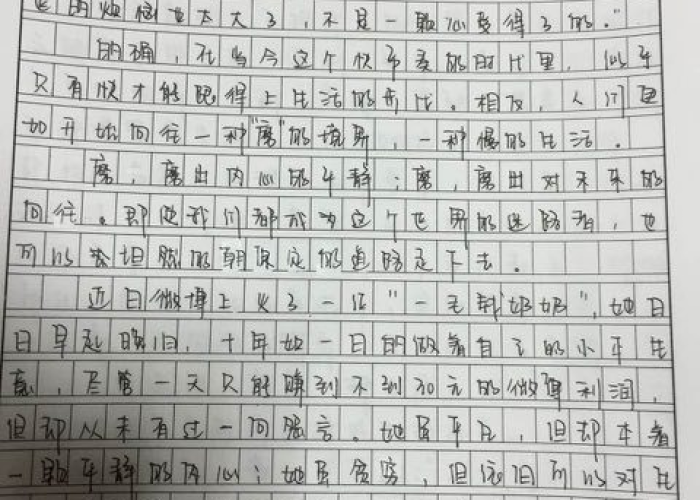 的烦恼也太大了，不是一颗心受得了的。"
的确，在当今这个快节奏的时代里，似乎
只有快才能跟得上生活的步伐。相反，人们更
如开始向往一种"磨"的境界，一种慢的生活。
磨，磨出内心的平静；磨，磨出对未来的
向往。即使我们都成为这个世界的迷路者，也
可以坦然的朝原定的道路走下去。
近日微博上火了一位"一毛钱奶奶"，她日
日早起晚归，十年如一日的做着自己的小本生
意，尽管一天只能赚到不到30元的微薄利润，
但却从未有过一句怨言。她虽平凡，但却本着
一颗平静的内心；她虽贫穷，但依旧可以对生